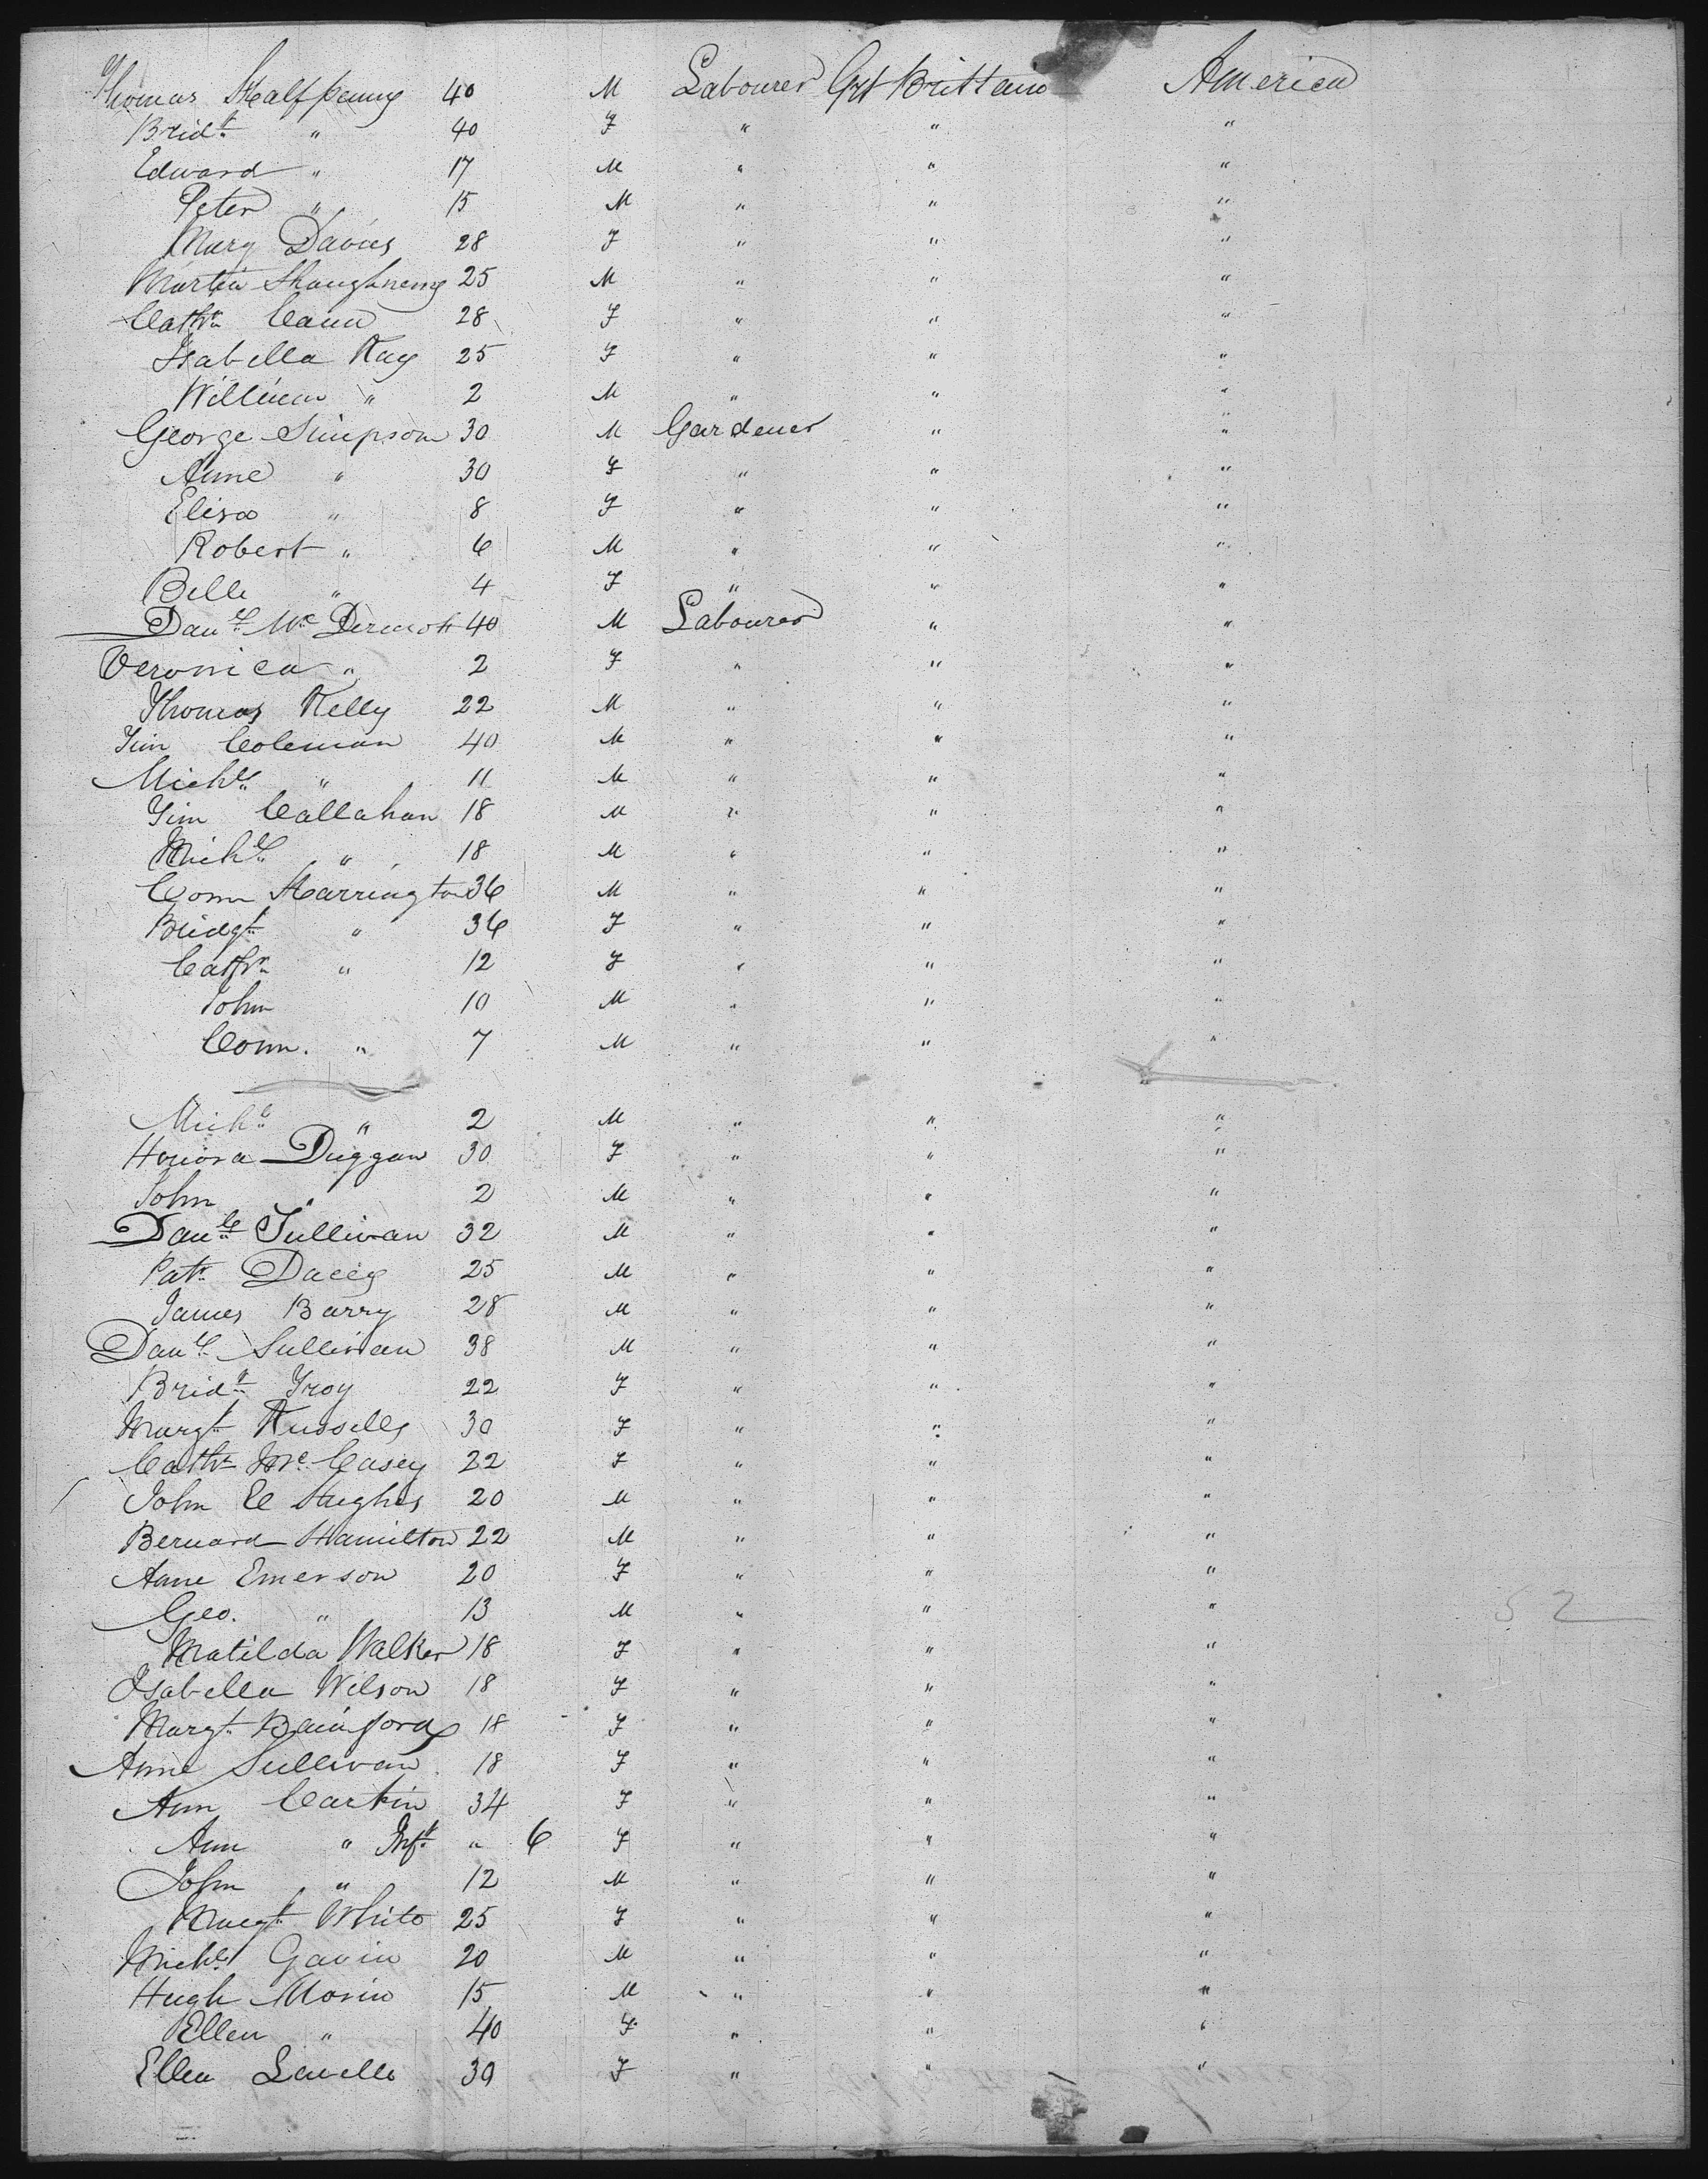 Thomas Halfpenny 40 M Labourer Grt Brittain America
Bridt " 40 F " " "
Edward " 17 M " " "
Peter " 15 M " " "
Mary Davies 28 F " " "
Martin Shaughnessy 25 M " " "
Cathn Cann 28 F " " "
Isabella Kay 25 F " " "
William " 2 M " " "
George Simpson 30 M Gardener " "
Anne " 30 F " " "
Eliza " 8 F " " "
Robert " 6 M " " "
Belle " 4 F " " "
Danl McDermott 40 M Labourer " "
Veronica " 2 F " " "
Thomas Kelly 22 M " " "
Tim Coleman 40 M " " "
Michl " 11 M " " "
Tim Callahan 18 M " " "
Michl " 18 M " " "
Corn Harrington 36 M " " "
Bridgt " 36 F " " "
Cathn " 12 F " " "
John 10 M " " "
Corn. " 7 M " " "
Michl " 2 M " " "
Honora Duggan 30 F " " "
John " 2 M " " "
Danl Sullivan 32 M " " "
Patk Dacey 25 M " " "
James Barry 28 M " " "
Danl Sullivan 38 M " " "
Bridt Troy 22 F " " "
Margt 30 F " " "
Cathn Mc Casey 22 F " " "
John Hughes 20 M " " "
Bernard Hamilton 22 M " " "
Anne Emerson 20 F " " "
Geo. " 13 M " " " 52
Matilda Walker 18 F " " "
Isabella Wilson 18 F " " "
Margt Bainford 18 F " " "
Anne Sullivan 18 F " " "
Ann Carkin 34 F " " "
Ann " Inft " 6 F " " "
John " 12 M " " "
Margt White 25 F " " "
Michl Gavin 20 M " " "
Hugh Morin 15 M " " "
Ellen " 40 F " " "
Ellen Lavelle 30 F " " "